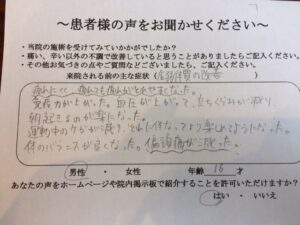 ～患者様の声をお聞かせください～
・当院の施術を受けてみていかがでしたか？
・痛い、辛い以外の不調で改善していると思うことがありましたらご記入ください。
・その他お気づきの点やご質問などございましたら、ご記入ください。
来院される前の主な症状（ 体質の改善
疲れにくく、疲れても疲れがとれやすくなった。
免疫力が上がった。血圧が上がって、立ちくらみが減り、
朝起きるのが楽になった。
運動中のケガが減り、それに伴なってより楽しめるようになった。
体のバランスが良くなった。偏頭痛が減った。
男性 ・ 女性 年齢 16 才
あなたの声をホームページや院内掲示板で紹介することを許可いただけますか？
はい ・ いいえ